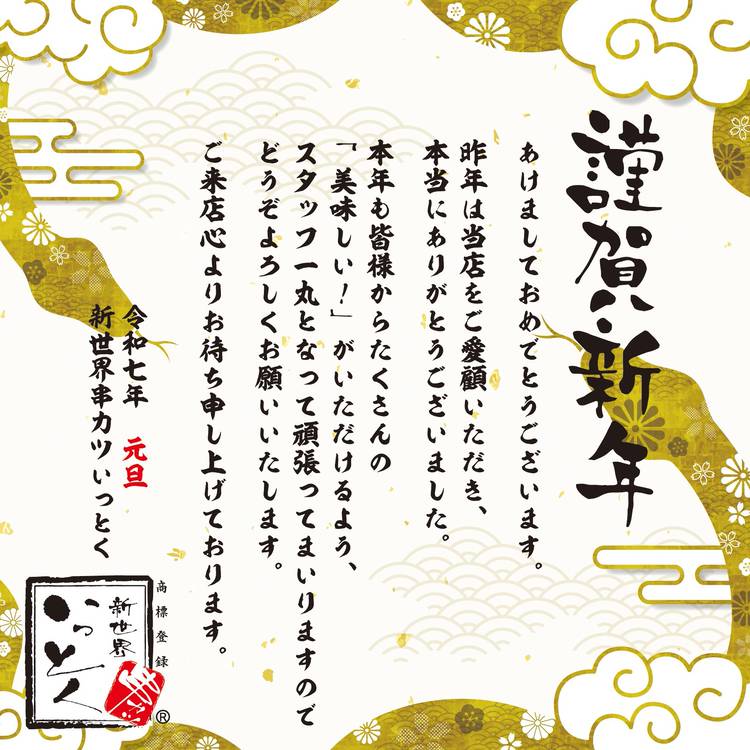 謹賀新年
あけましておめでとうございます。
昨年は当店をご愛顧いただき、
本当にありがとうございました。
本年も皆様からたくさんの
「美味しい！」がいただけるよう、
スタッフ一丸となって頑張ってまいりますので
どうぞよろしくお願いいたします。
ご来店心よりお待ち申し上げております。
令和七年 元旦
新世界串カツいっとく
商標登録
新世界
いっとく
®